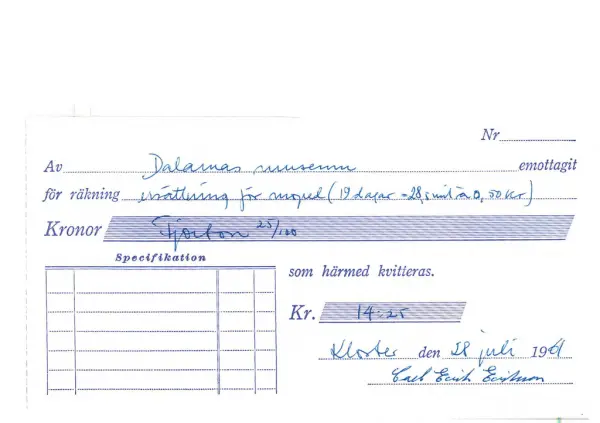 Nr
Av Dalarnas museum emottagit
för räkning ersättning för moped (19 dagar = 28,5 mil à 0,50 kr)
Kronor Fjorton 25/100
Specifikation
som härmed kvitteras.
Kr. 14:25
Kloster den 28 juli 1961
Carl Erik Erikson